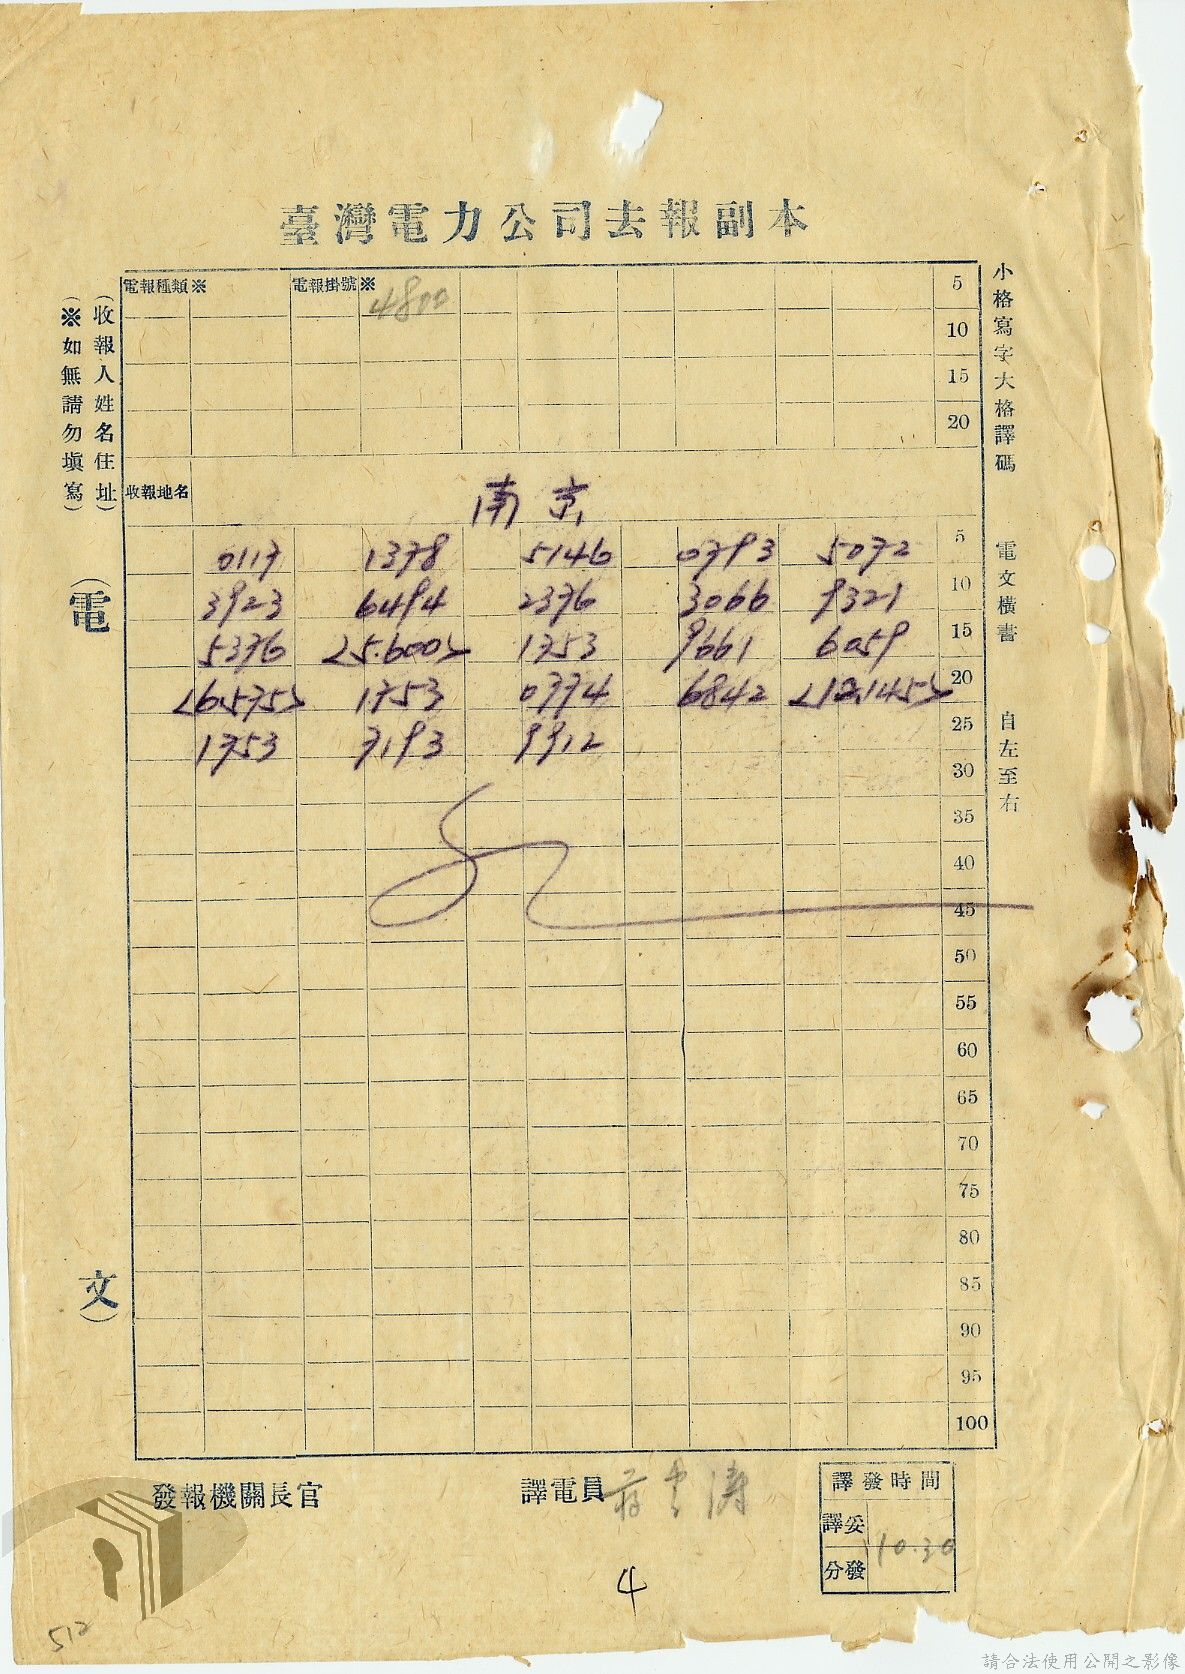 臺灣電力公司去報副本
電報種類※ 電報掛號※ 4800 5
10
15
20
收報地名 南京
0117 1378 5146 0793 5072 5
3923 6494 2376 3066 9321 10
5376 <25.600> 1753 9661 6059 15
<6.575> 1753 0774 6842 20
1753 7193 9912 25
30
35
40
45
50
55
60
65
70
75
80
85
90
95
100
小格寫字大格譯碼 電文橫書 自左至右
(收報人姓名住址)
(※如無請勿填寫)
(電文)
發報機關長官 譯電員
譯發時間
譯妥
分發 10.30
4
512
請合法使用公開之影像